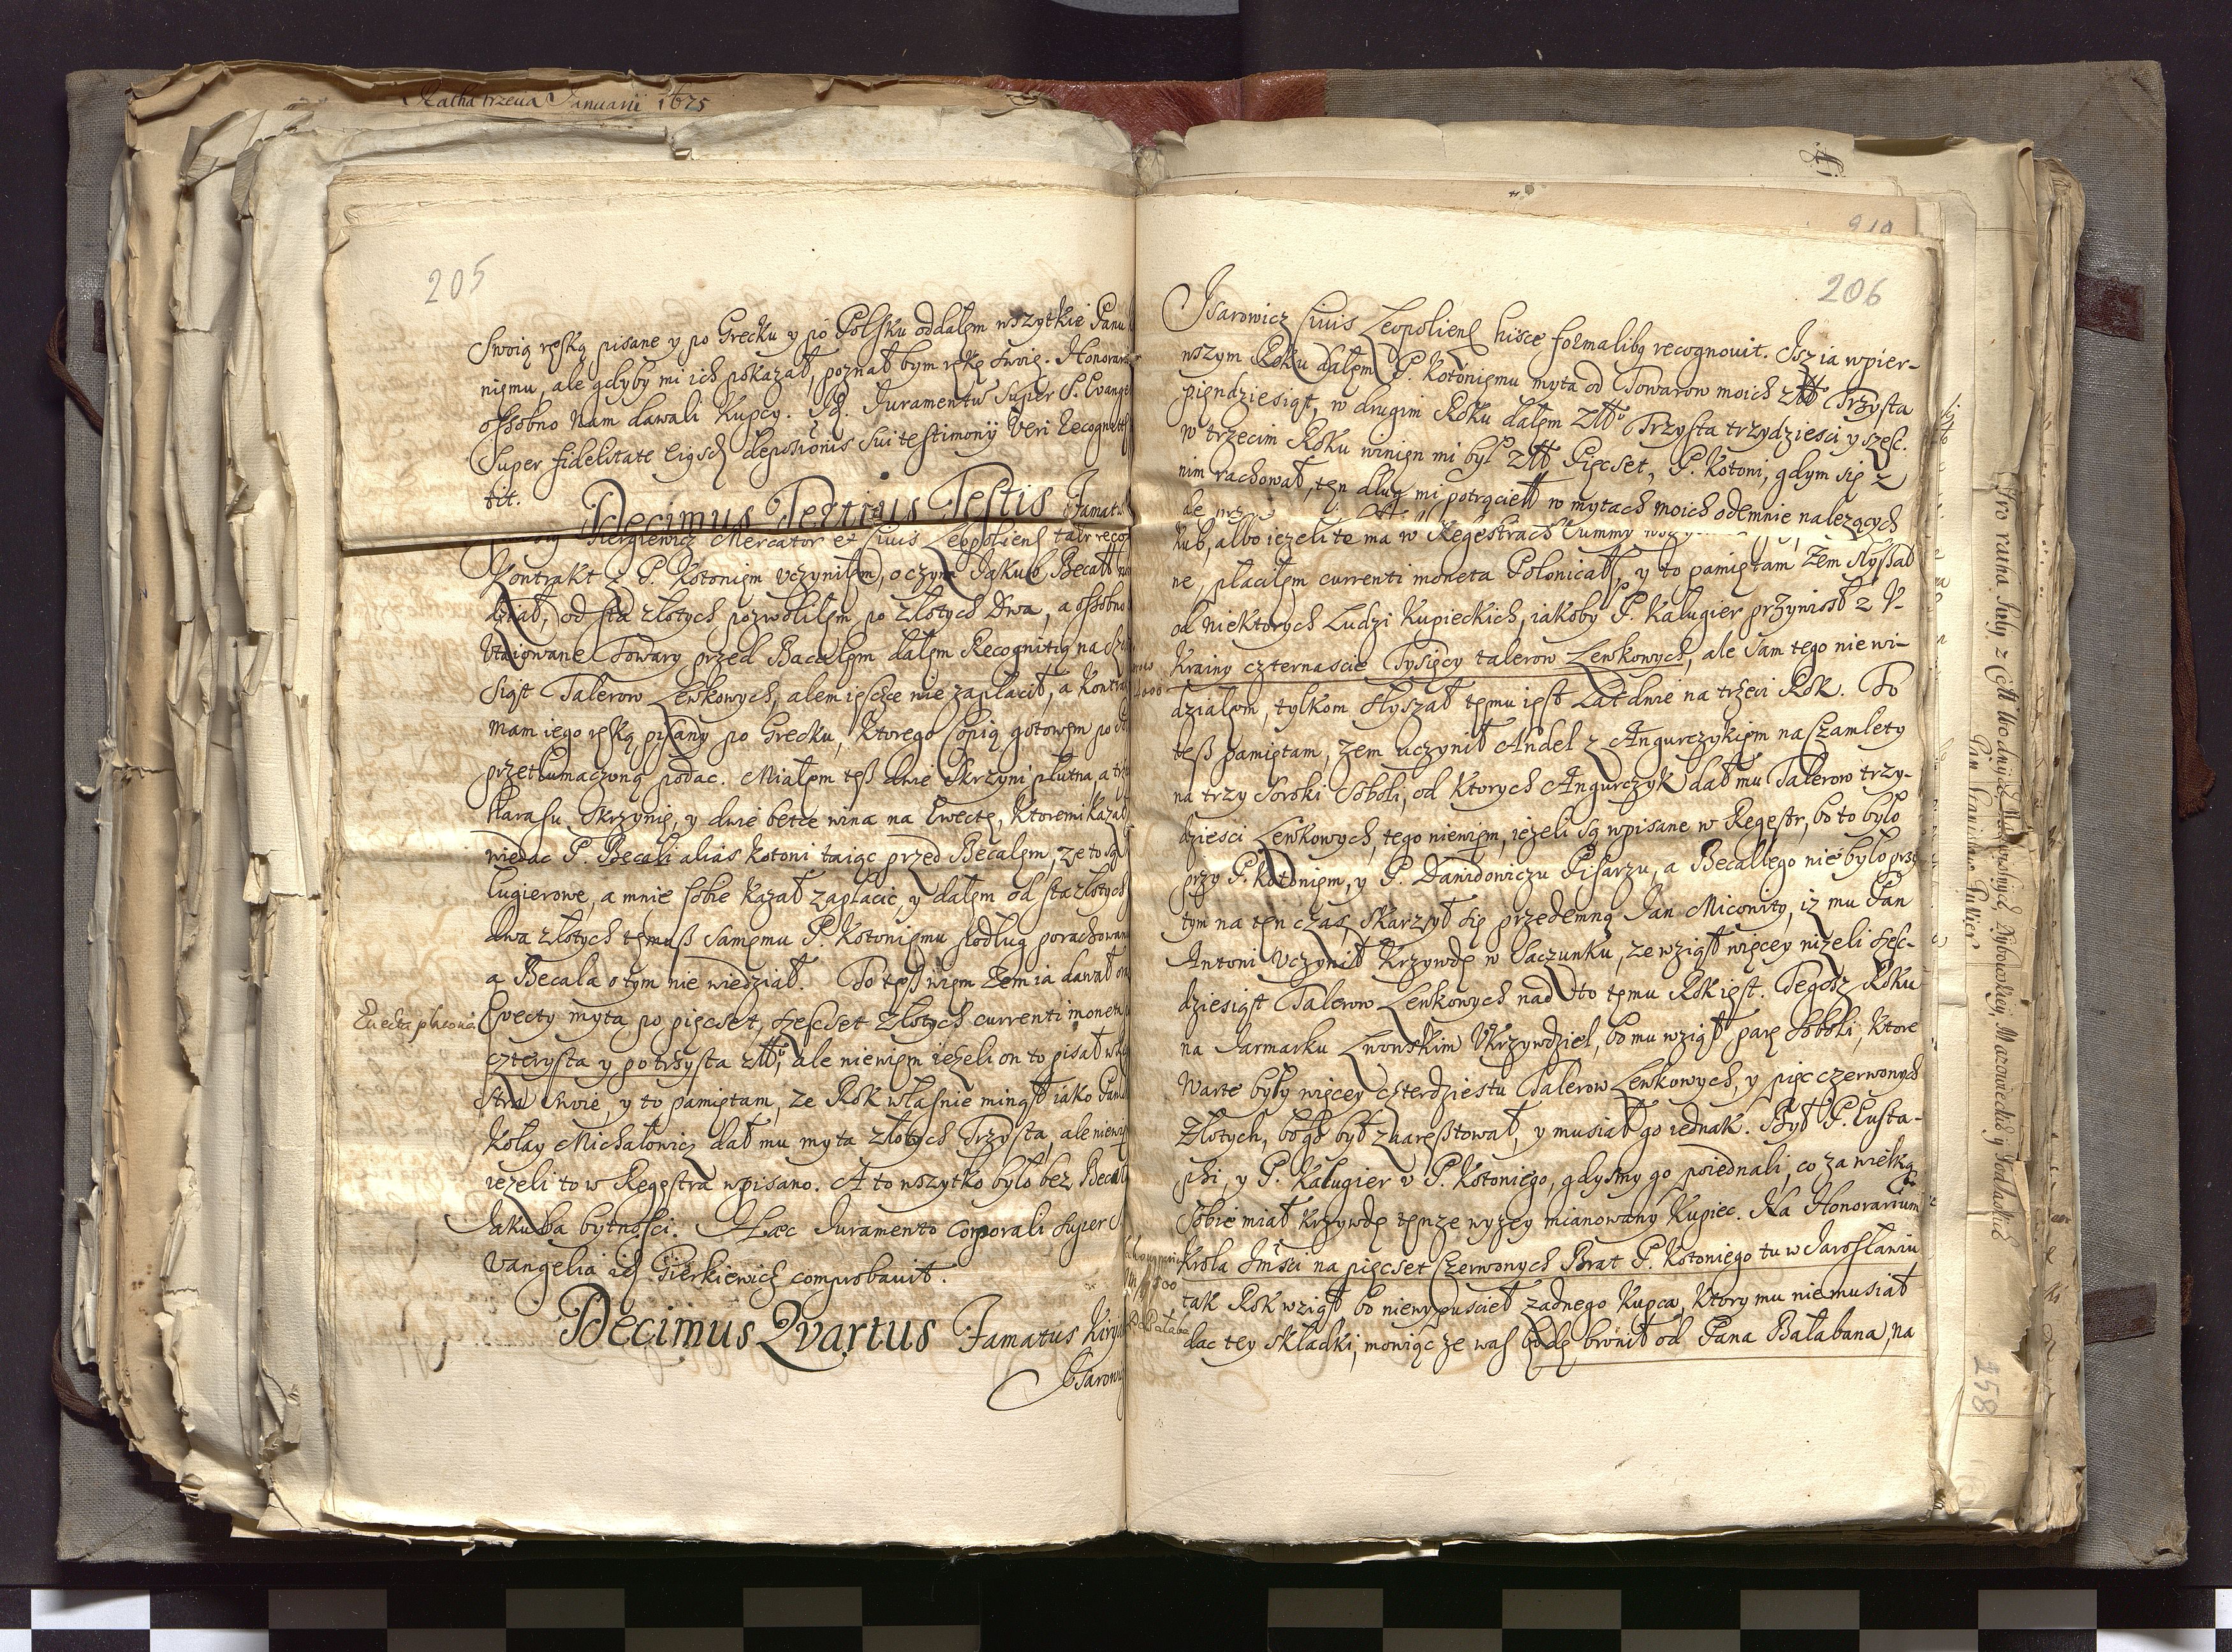 Ratha trzecia Januarii 1675
205
Swoią ręką pisane y po Grecku y po Polsku oddałem wszytkie Panu
niemu, ale gdyby mi ich pokazał, poznał bym rękę swoię. Honorar
ossobno Nam dawali Kupcy. Iđ. Juramentū super S. Evange
super fidelitate eiusđ depositionis sui testimonij veri recognit
tit.
Decimus Tertius Testis Famat
Pierkiewicz Mercator et Ciuis Leopolienſ talr reco
Kontrakt z P. Kotoniem vczyniłem, oczym Jakub Becałł
dział, od sta złotych pozwoliłem po złotych dwa, a ossobno
vtaiowane Towary przed Bacalem dałem Recognitią na
siąt Talerow Lewkowych, alem ieszcze nie zapłacił, a Kontra
mam iego ręką pisany po Grecku, Ktorego Copią gotowem po
przetłumaczoną podac. Miałem tesz dwie skrzyni płutna, a
Harasu Skrzynię, y dwie betce wina na Ewectę, Ktoremi kazał
wiedac P. Becali alias Kotoni taiąc przed Becalem, ze to są
ługierowe, a mnie sobie kazał zapłacic, y dałem od sta złotych
dwa złotych temusz samemu P. Kotoniemu podług porachowan
a Becala o tym nie wiedział. To tesz wiem zem ia dawał
Evecta
Evecty myta po pięcset, szescset złotych currenti moneta
czterysta y potrzysta zło, ale niewiem iezeli on to pisał w
stra swoie, y to pamiętam, ze Rok własnie minął iako Pan
Kołay Michałowicz dał mu myta złotych Trzysta, ale niewi
iezeli to w Regestra wpisano. A to wszytko było bez Becal
Jakuba bytnosci. Hæc Juramento corporali super S.
Vangelia iđ Pierkiewicz comprobauit.
Decimus Qvartus Famatus Kiry
Isarowi
206
Isarowicz Ciuis Leopolienſ hisce formalibq recognouit. Isz ia wpier-
wszym Roku dałem P. Kotoniemu myta od Towarow moich złł Trzysta
pięndziesiąt, w drugim Roku dałem złło Trzysta trzydziesci y szesc.
w trzecim Roku winien mi był złł Pięcset, P. Kotoni, gdym się z
nim rachował, ten dług mi potrącieł w mytach moich odemnie nalezących
kub, albo iezeli te ma w Regestrach summy
ne, płaciłem currenti moneta Polonicałſ, y to pamiętam zem słyszał
od niektorych Ludzi Kupieckich, iakoby P. Kaługier przyniosł z V-
krainy czternascie Tysięcy talerow Lewkowych, ale sam tego nie wi-
działem, tylkom słyszał temu iest Lat dwie na trzeci Rok. To
tesz pamiętam, zem uczynił Andel z Angurczykiem na Czamlety
na trzy Soroki Soboli, od Ktorych Angurczyk dał mu Talerow trzy-
dziesci Lewkowych, tego niewiem, iezeli są wpisane w Regestr, bo to było
przy P. Kotoniem, y P. Dawidowiczu Pisarzu, a Becallego nie było przy
tym na ten czas, skarzył się przedemną Jan Miconity, iz mu Pan
Antoni vczynił Krzywdę w Saczunku, ze wziął więcey nizeli szesc-
dziesiąt Talerow Lewkowych nad to temu Rok iest. Tegosz Roku
na Jarmarku Lwowskim Vkrzywdzieł, bo mu wziął parę Soboli, Ktore
warte były więcey czterdziestu Talerow Lewkowych, y pięc czerwonych
Złotych, bo go był zaaresztował, y musiał go iednak. Był P. Eusta-
phi, y P. Kaługier v P. Kotoniego, gdysmy go poiednali, co za wielką
sobie miał krzywdę tenze wyzey mianowany Kupiec. Na Honorarium
Krola Jmści na pięcset Czerwonych Brat P. Kotoniego tu w Jarosławiu
tak Rok wziął bo niewypuscieł zadnego Kupca, Ktory mu nie musiał
dac tey składki, mowiąc ze was będę bronił od Pana Bałabana, na
258